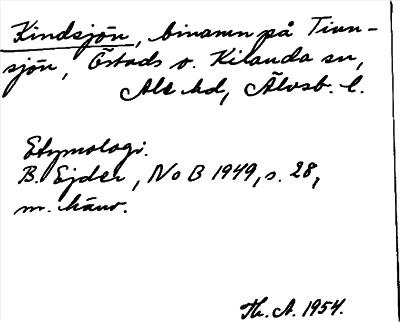 Kindsjön, binamn på Tinn-
sjön, Östads o. Kilanda sn,
Ale hd, Älvsb. l.
Etymologi.
B. Ejder, NoB 1949, s. 28,
m. hänv.
Th. A. 1954.